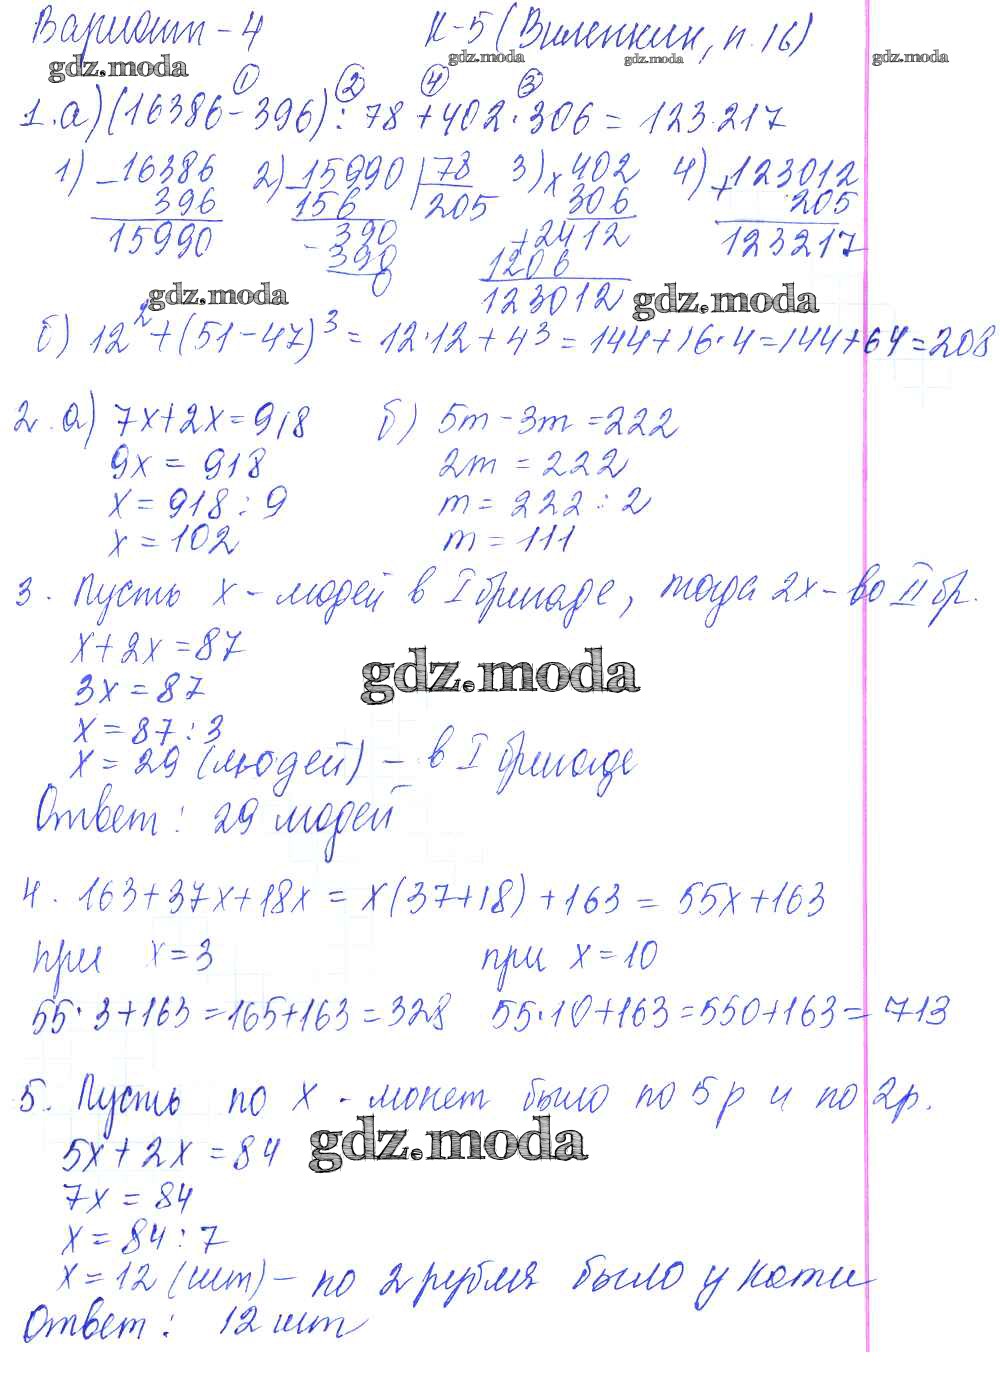 Вариант - 4 К-5 (Виленкин, п. 16)
gdz.moda gdz.moda gdz.moda gdz.moda
① ② ④ ③
1. а) (16386 - 396) : 78 + 402 · 306 = 123217
1) - 16386 2) - 15990 | 78 3) × 402 4) + 123012
396 156 205 306 205
15990 390 + 2412 123217
- 390 1206
0 123012
gdz.moda gdz.moda
б) 12² + (51 - 47)³ = 12 · 12 + 4³ = 144 + 16 · 4 = 144 + 64 = 208
2. а) 7х + 2х = 918 б) 5m - 3m = 222
9х = 918 2m = 222
х = 918 : 9 m = 222 : 2
х = 102 m = 111
3. Пусть х - людей в I бригаде, тогда 2х - во II бр.
х + 2х = 87
gdz.moda
3х = 87
х = 87 : 3
х = 29 (людей) - в I бригаде
Ответ: 29 людей
4. 163 + 37х + 18х = х(37 + 18) + 163 = 55х + 163
при х = 3 при х = 10
55 · 3 + 163 = 165 + 163 = 328 55 · 10 + 163 = 550 + 163 = 713
5. Пусть по х - монет было по 5 р и по 2р.
5х + 2х = 84
gdz.moda
7х = 84
х = 84 : 7
х = 12 (шт) - по 2 рубля было у Кати
Ответ: 12 шт